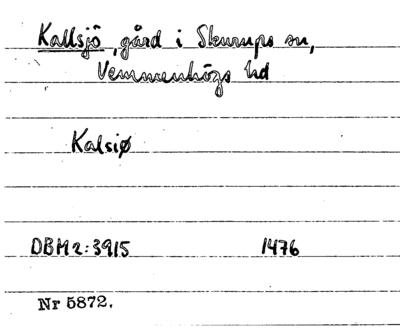 Kallsjö, gård i Skurups sn,
Vemmenhögs hd
Kalsiø
DBM2:3915 1476
Nr 5872.